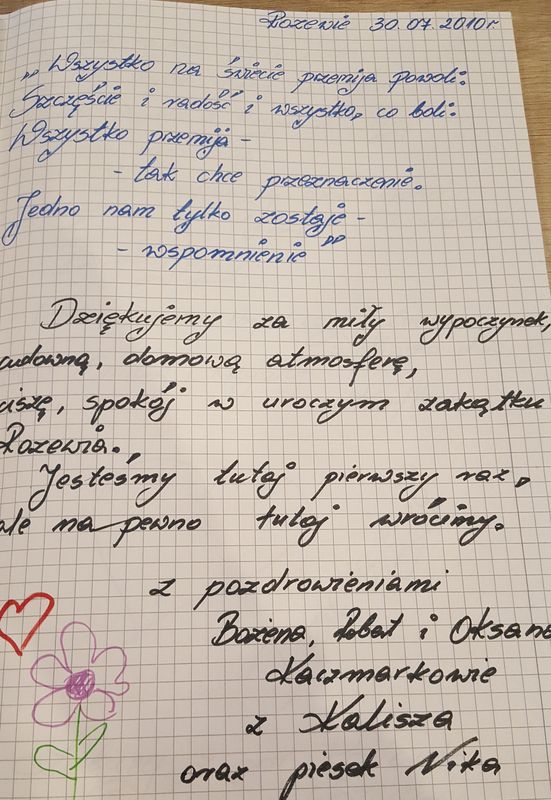 Rozewie 30.07.2010r
„Wszystko na świecie przemija powoli.
Szczęście i radość i wszystko, co boli.
Wszystko przemija -
- tak chce przeznaczenie.
Jedno nam tylko zostaje -
- wspomnienie"
Dziękujemy za miły wypoczynek,
cudowną, domową atmosferę,
ciszę, spokój w uroczym zakątku
Rozewia.
Jesteśmy tutaj pierwszy raz,
ale na pewno tutaj wrócimy.
z pozdrowieniami
Bożena, Robert i Oksana
Kaczmarkowie
z Kalisza
oraz piesek Nika